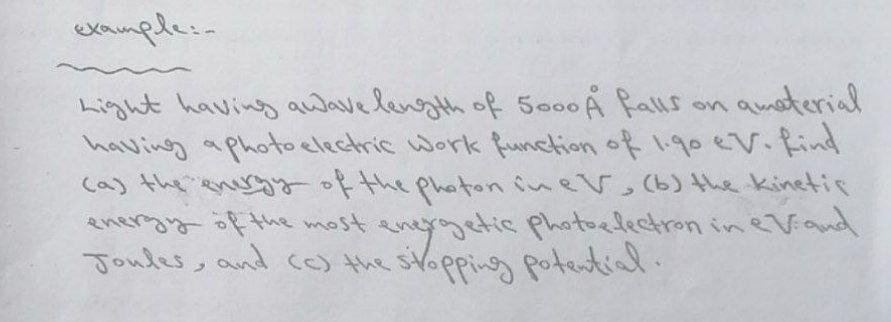 example:-
Light having a wave length of 5000 Å falls on a material
having a photoelectric work function of 1.90 eV. find
(a) the energy of the photon in eV, (b) the kinetic
energy of the most energetic photoelectron in eV and
Joules, and (c) the stopping potential.